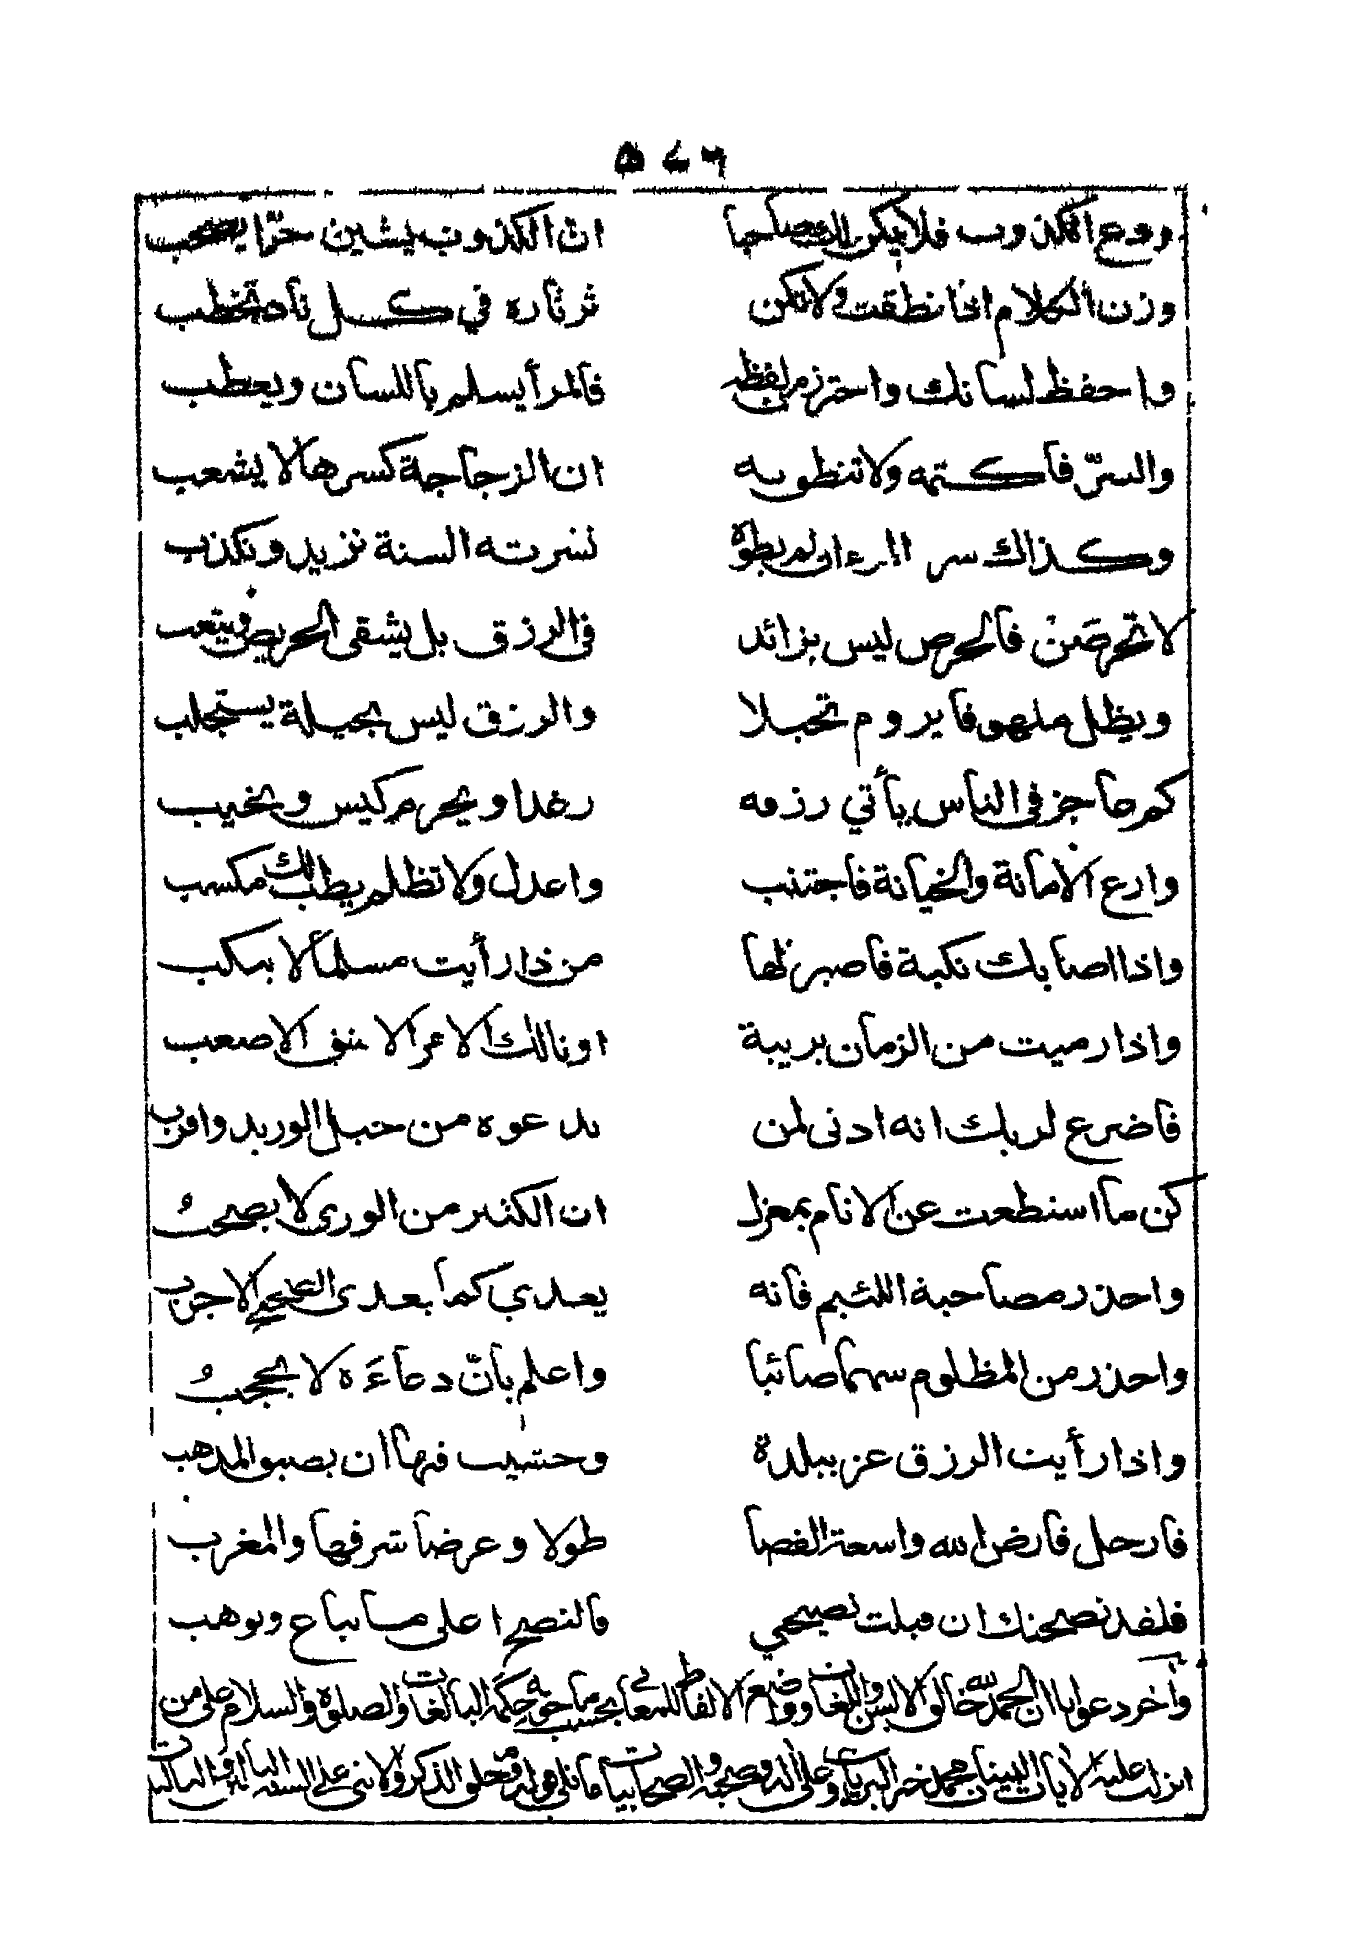 ٥٧٦
ودع الكذوب فلا يكن لك صاحبا ان الكذوب يشين حرّا يصحب
وزن الكلام اذا نطقت ولا تكن ثرثاره في كل ناد تخطب
واحفظ لسانك واحترز من لفظه فالمرأ يسلم باللسان ويعطب
والسرّ فاكتمه ولا تنطق به ان الزجاجة كسرها لا يشعب
وكذالك سر المرء ان لم يطوه نشرته السنة تزيد وتكذب
لا تحرصَنْ فالحرص ليس بزائد في الرزق بل يشقى الحريص ويتعب
ويظل ملهوفا يروم تحيلا والرزق ليس بحيلة يستجلب
كم عاجز في الناس يأتي رزقه رغدا ويحرم كيس ويخيب
وارع الامانة والخيانة فاجتنب واعدل ولا تظلم يطب لك مكسب
واذا اصابك نكبة فاصبر لها من ذا رأيت مسلما لا ينكب
واذا رميت من الزمان بريبة او نالك الامر الاشق الاصعب
فاضرع لربك انه ادنى لمن يدعوه من حبل الوريد واقرب
كن ما استطعت عن الانام بمعزل ان الكثير من الورى لا يصحبُ
واحذر مصاحبة اللئيم فانه يعدي كما يعدى الصحيح الاجرب
واحذر من المظلوم سهما صائبا واعلم بانّ دعاءَه لا يحجبُ
واذا رأيت الرزق عز ببلدة وخشيت فيها ان يضيق المذهب
فارحل فارض الله واسعة الفضا طولا وعرضا شرقها والمغرب
فلقد نصحتك ان قبلت نصيحتي فالنصح اغلى ما يباع ويوهب
وأخر دعوانا ان الحمد لله خالق الالسن واللغات وواضع الالفاظ للمعاني بحسب ما حوته حكمه البالغات والصلوة والسلام على من
انزلت عليه الايات البينات محمد خير البريات وعلى اله وصحبه والصحابيات ما تلى